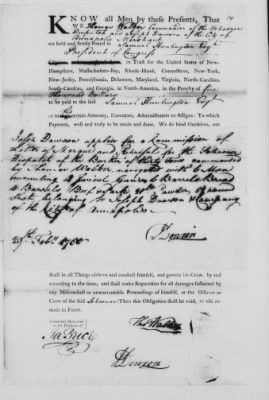 KNOW all Men by these Presents, That
WE Thomas Walker Commander of the Schooner
Dispatch and Joseph Dawson of the City of
Annapolis
are held and firmly bound to Samuel Huntington Esqr
President of Congress
in Trust for the United States of New-
Hampshire, Massachusetts-Bay, Rhode-Island, Connecticut, New-York,
New-Jersey, Pennsylvania, Delaware, Maryland, Virginia, North-Carolina,
South-Carolina, and Georgia, in America, in the Penalty of five
thousand Dollars
to be paid to the said Samuel Huntington Esqr
his certain Attorney, Executors, Administrators or Assigns: To which
Payment, well and truly to be made and done, We do bind Ourselves, our
Joseph Dawson applies for a Commission of
Letters of Marque and Reprisal for the Schooner
Dispatch of the Burthen of thirty tons commanded
by Thomas Walker navigated with 6 Men
mounting Carriage Guns
4 Barrels Beef Powder
Shot, belonging to Joseph Dawson & Company
of the City of Annapolis
29th Feby 1780
J Dawson
shall in all Things observe and conduct himself, and govern his Crew, by and
according to the same, and shall make Reparation for all damages sustained by
any Misconduct or unwarrantable Proceedings of himself, or the Officers or
Crew of the said Schooner Then this Obligation shall be void, or else re-
main in Force.
Sealed and Delivered
in the Presence of
Thos Walker
J Dawson